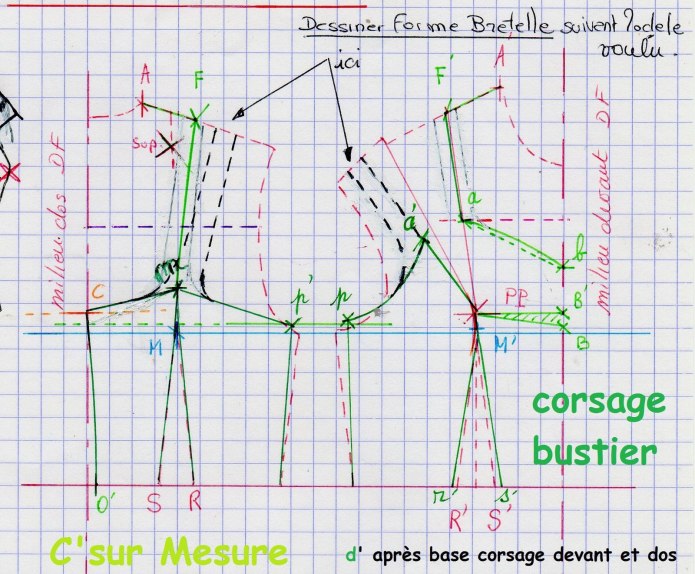 Dessiner Forme Bretelle suivant Modele
voulu.
ici
A
F
F'
A'
Sup
milieu dos DF
milieu devant DF
a
a'
b
m
C
p'
p
PP
B'
B
M
M'
corsage
bustier
O'
S
R
r'
s'
R'
S'
C'sur Mesure
d' après base corsage devant et dos